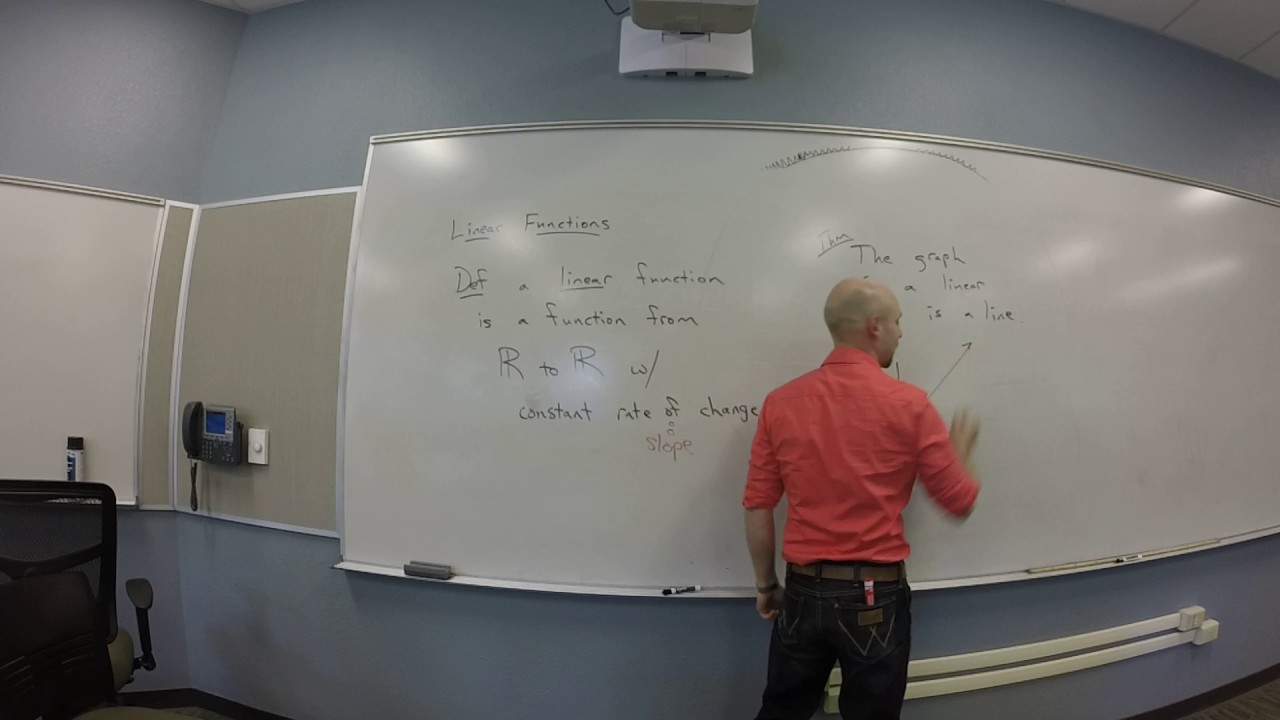 Linear Functions
Def a linear function
is a function from
ℝ to ℝ w/
constant rate of change
slope
Thm
The graph
a linear
is a line.